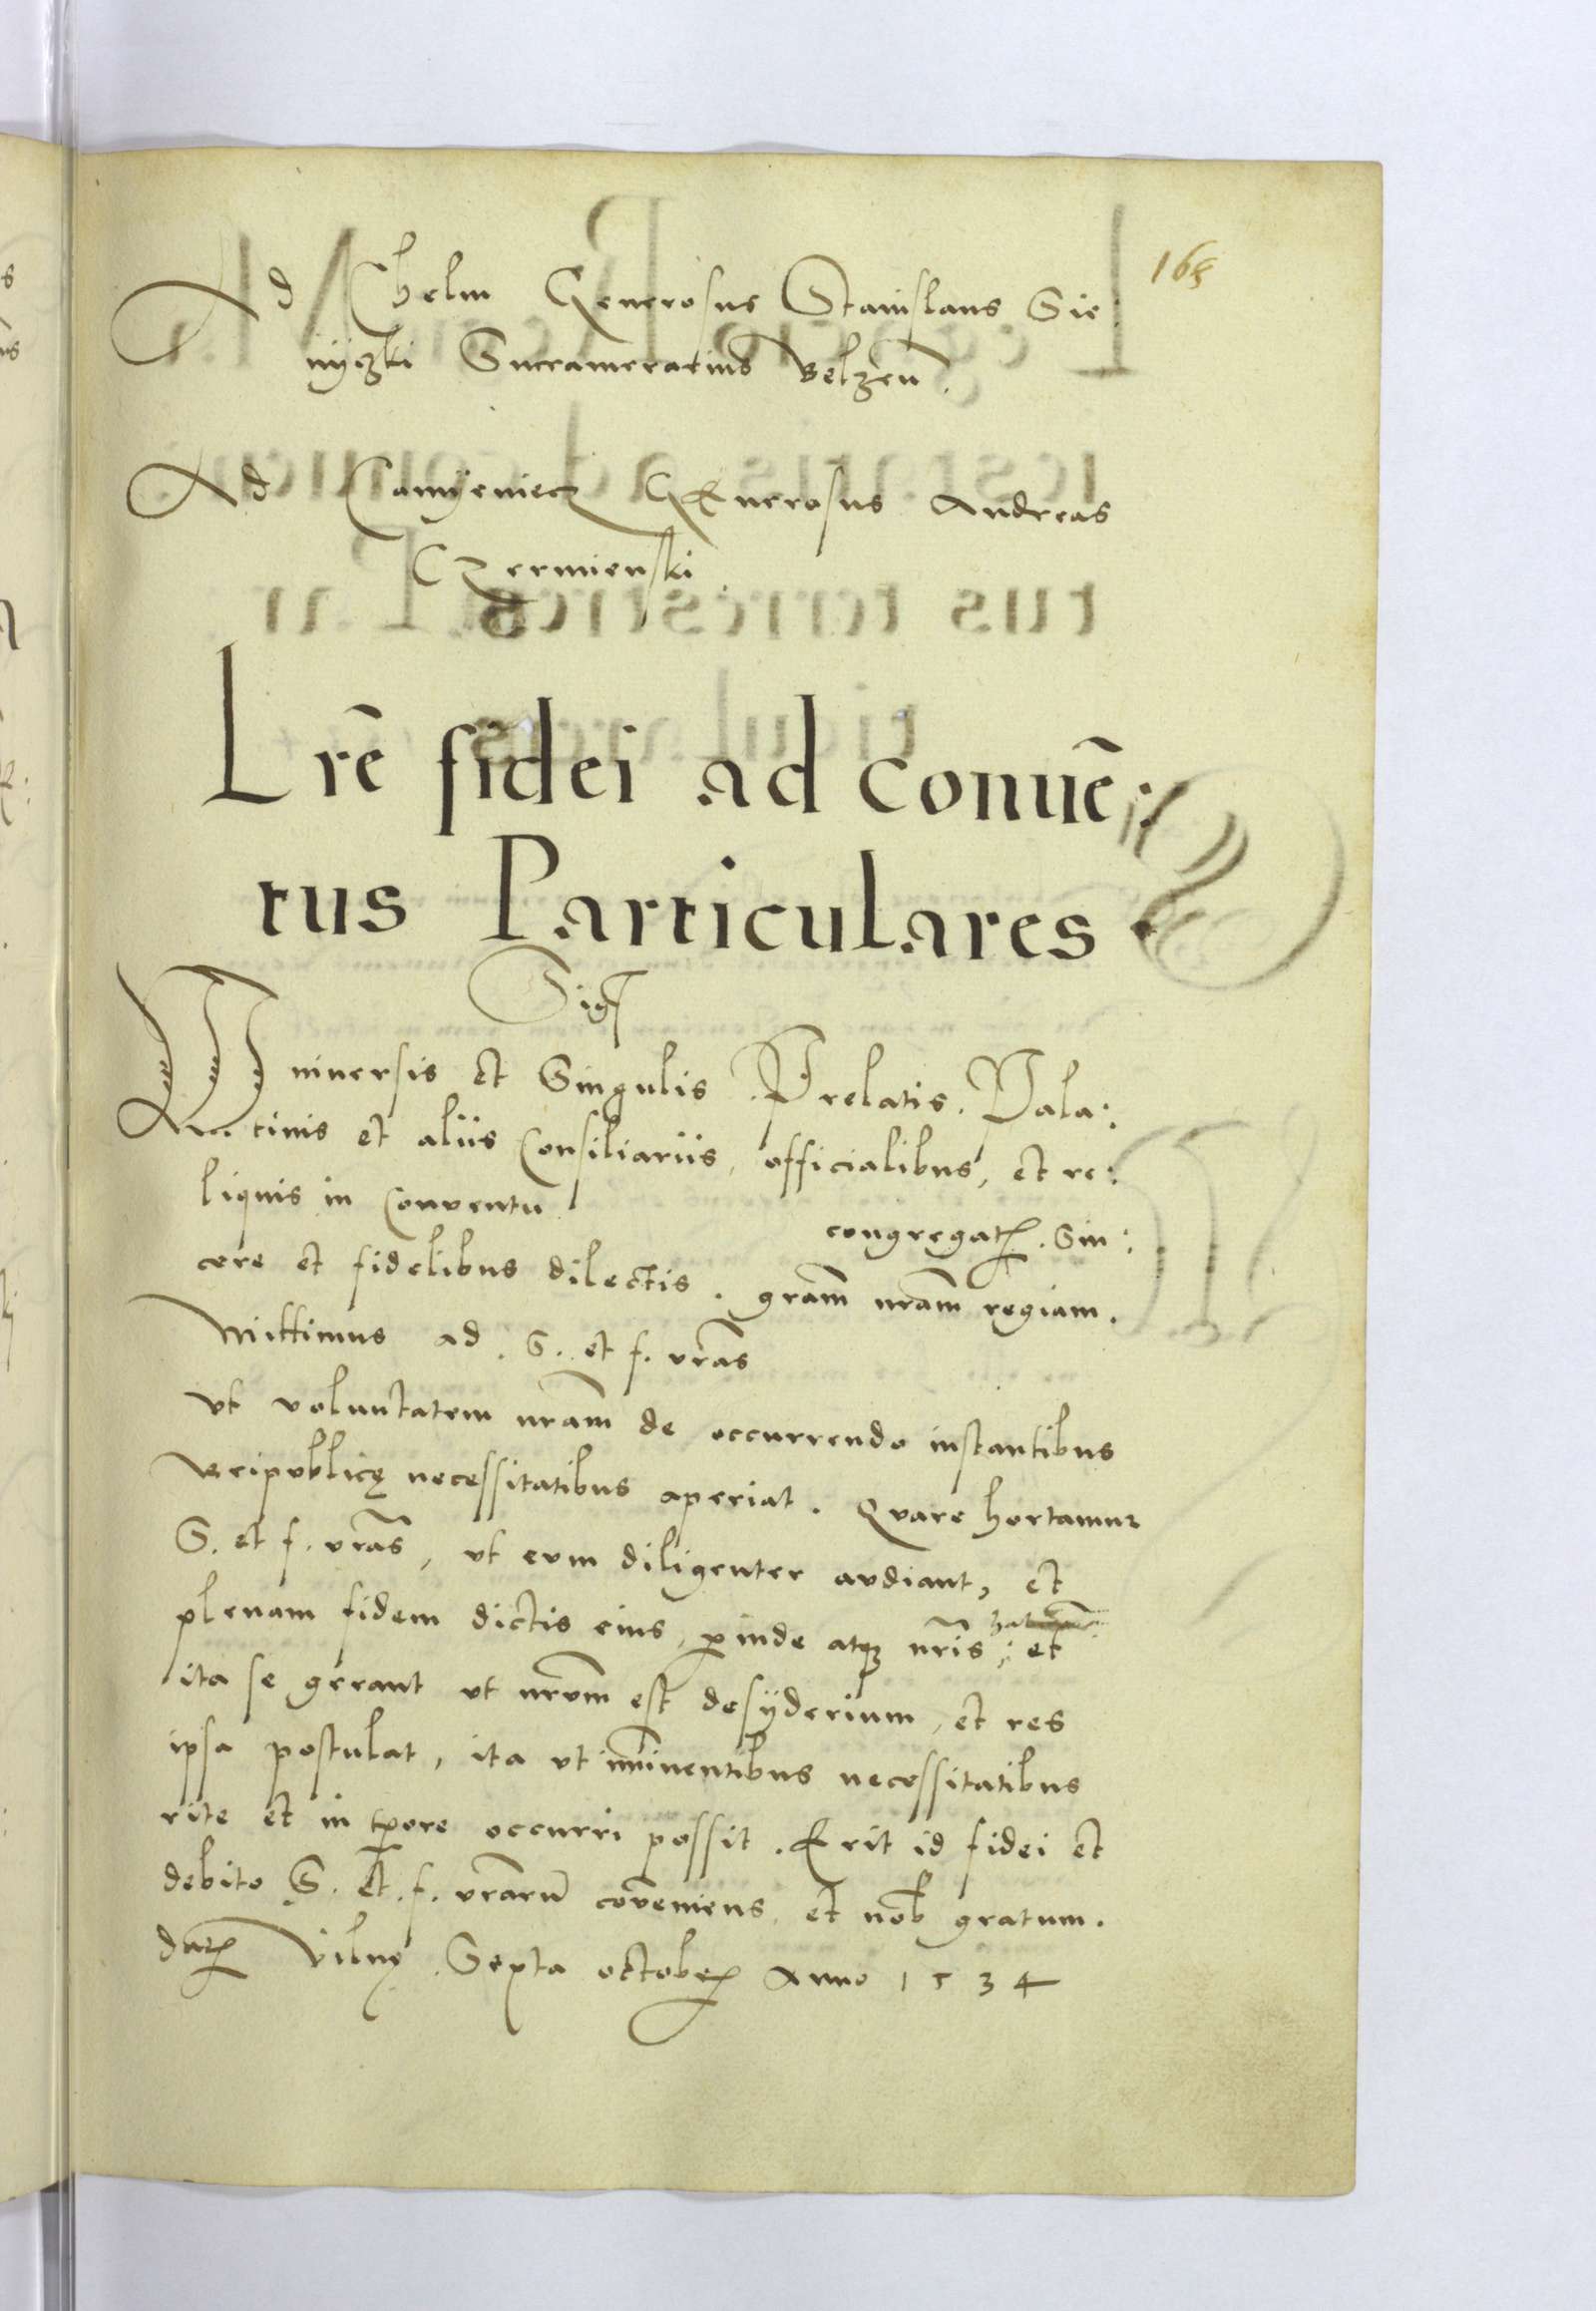 168
Ad Chelm Generosus Stanislaus Sie:
nyczki Succamerarius Belzen̄.
Ad Camyeniecz GEnerosus Andreas
Czermienski
Lrē fidei ad Conuē:
tus Particulares.
Sig
Vniuersis et Singulis Prelatis. Pala:
tinis et aliis Consiliariis, officialibus, et re:
liquis in Conventu
congregat. Sin:
cere et fidelibus dilectis. gram̄ nram̄ regiam.
Mittimus ad. S. et f. vrās
vt voluntatem nram̄ de occurrendo instantibus
Reipublicę necessitatibus aperiat. Quare hortamur
S. et f. vrās, vt eum diligenter audiant, et
plenam fidem dictis eius, perinde atq nrīs, et
ita se gerant vt nrūm est desyderium, et res
ipsa postulat, ita vt im̄inentibus necessitatibus
rite et in tpore occurri possit. Erit id fidei et
debito S. et. f. vrarū cōveniens et nob gratum.
dat Vilnę Sexta octobr Anno 1534